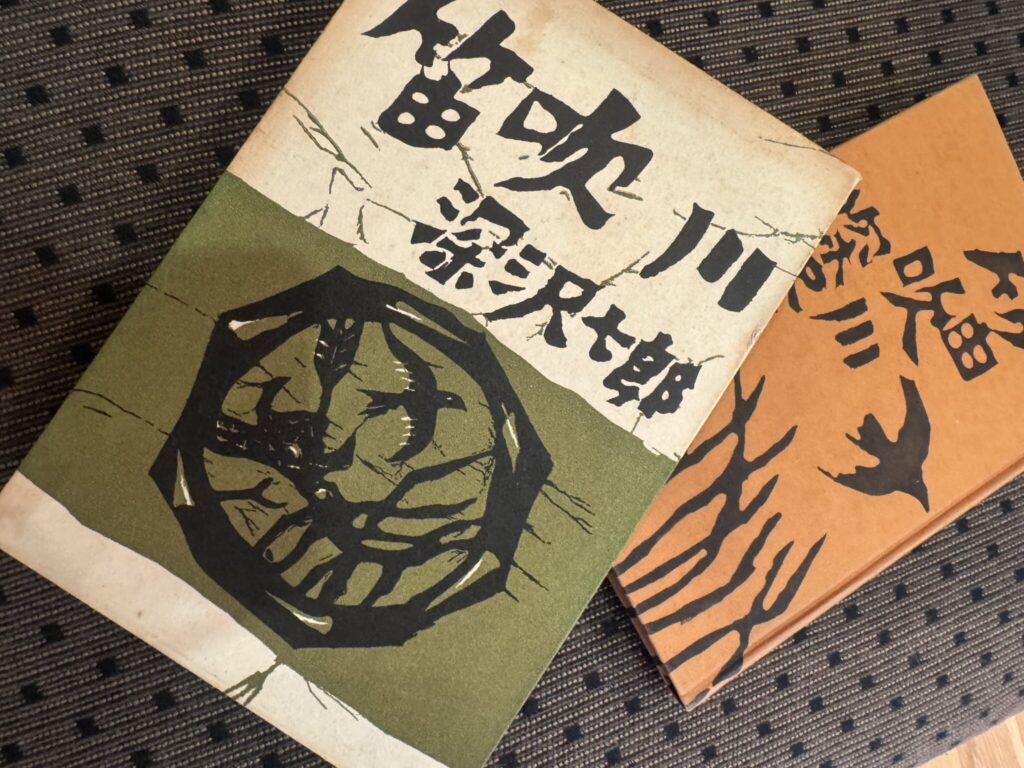 笛吹川
深沢七郎
笛吹川